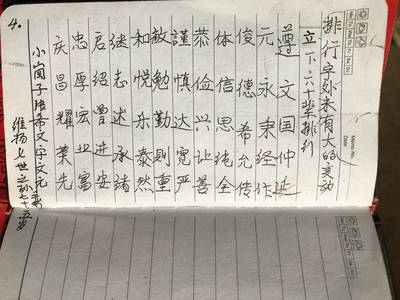 4.
Memo No.
Date
排行字外来有大的变动
立一下六十辈排列
遵文国仲延
元永秉经作
俊德希允传
体信思纯全
恭俭兴让善
謹慎达宽严
敏勉勤则重
和悦乐泰然
继志述承绪
启绍曾进安
忠厚宏业富
庆昌耀荣先
小崮子张希文守文元
维扬七世之孙七十五岁